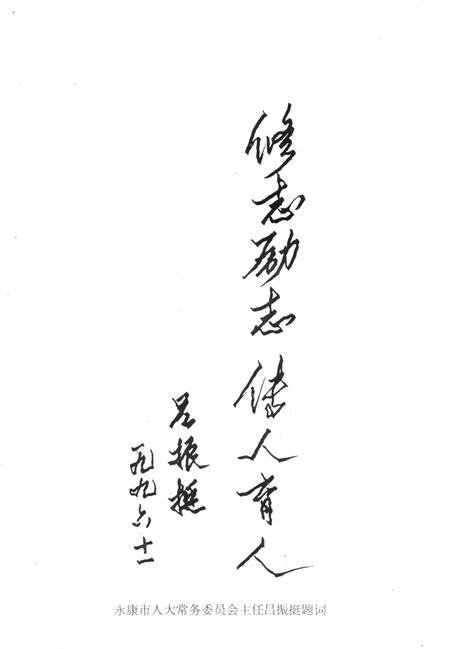 修志励志 传人育人
吕振挺
一九九六十一
永康市人大常务委员会主任吕振挺题词